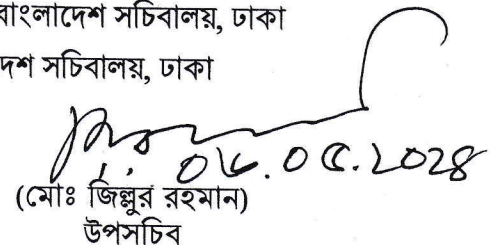 বাংলাদেশ সচিবালয়, ঢাকা
দেশ সচিবালয়, ঢাকা
০৬.০৫.২০২৪
(মোঃ জিল্লুর রহমান)
উপসচিব